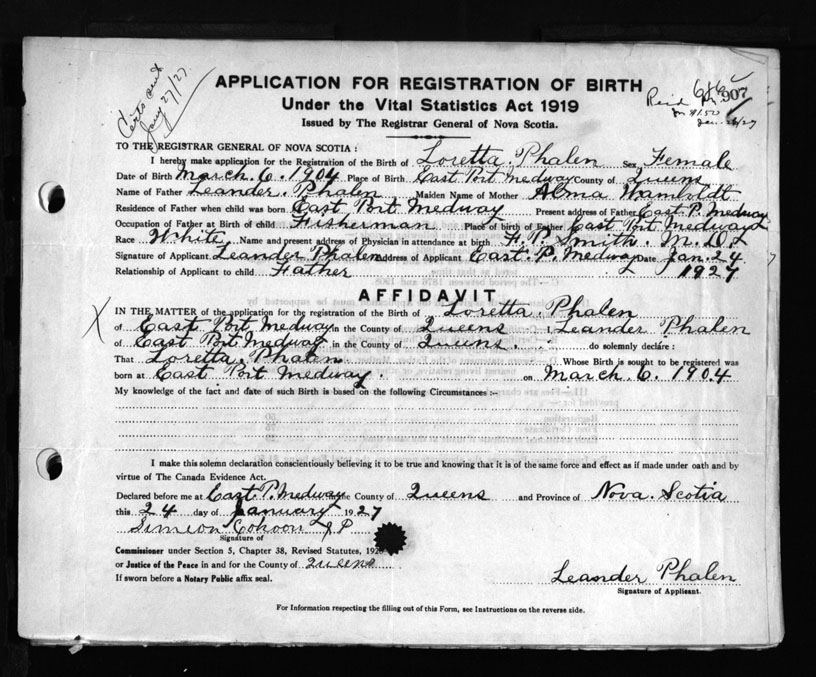 Certs sent
Jany 27/27
APPLICATION FOR REGISTRATION OF BIRTH
Under the Vital Statistics Act 1919
Issued by The Registrar General of Nova Scotia.
907
$1.50
TO THE REGISTRAR GENERAL OF NOVA SCOTIA:
I hereby make application for the Registration of the Birth of Loretta Phalen Sex Female
Date of Birth March. 6. 1904 Place of Birth East Port Medway County of Queens
Name of Father Leander. Phalen Maiden Name of Mother Alma Wamboldt
Residence of Father when child was born East Port Medway Present address of Father East P. Medway
Occupation of Father at Birth of child Fisherman Place of birth of Father East Port Medway
Race White Name and present address of Physician in attendance at birth F. P. Smith. M. D.
Signature of Applicant Leander Phalen Address of Applicant East. P. Medway Date Jan. 24
Relationship of Applicant to child Father 1927
AFFIDAVIT
IN THE MATTER of the application for the registration of the Birth of Loretta. Phalen
of East Port Medway in the County of Queens I Leander Phalen
of East Port Medway in the County of Queens. do solemnly declare:
That Loretta. Phalen Whose Birth is sought to be registered was
born at East Port Medway. on March. 6. 1904
My knowledge of the fact and date of such Birth is based on the following Circumstances :-
I make this solemn declaration conscientiously believing it to be true and knowing that it is of the same force and effect as if made under oath and by
virtue of The Canada Evidence Act.
Declared before me at East P. Medway the County of Queens and Province of Nova. Scotia
this 24 day of January 1927
Simeon Cohoon J P
Signature of
Commissioner under Section 5, Chapter 38, Revised Statutes, 192
or Justice of the Peace in and for the County of Queens
If sworn before a Notary Public affix seal.
Leander Phalen
Signature of Applicant.
For Information respecting the filling out of this Form, see Instructions on the reverse side.